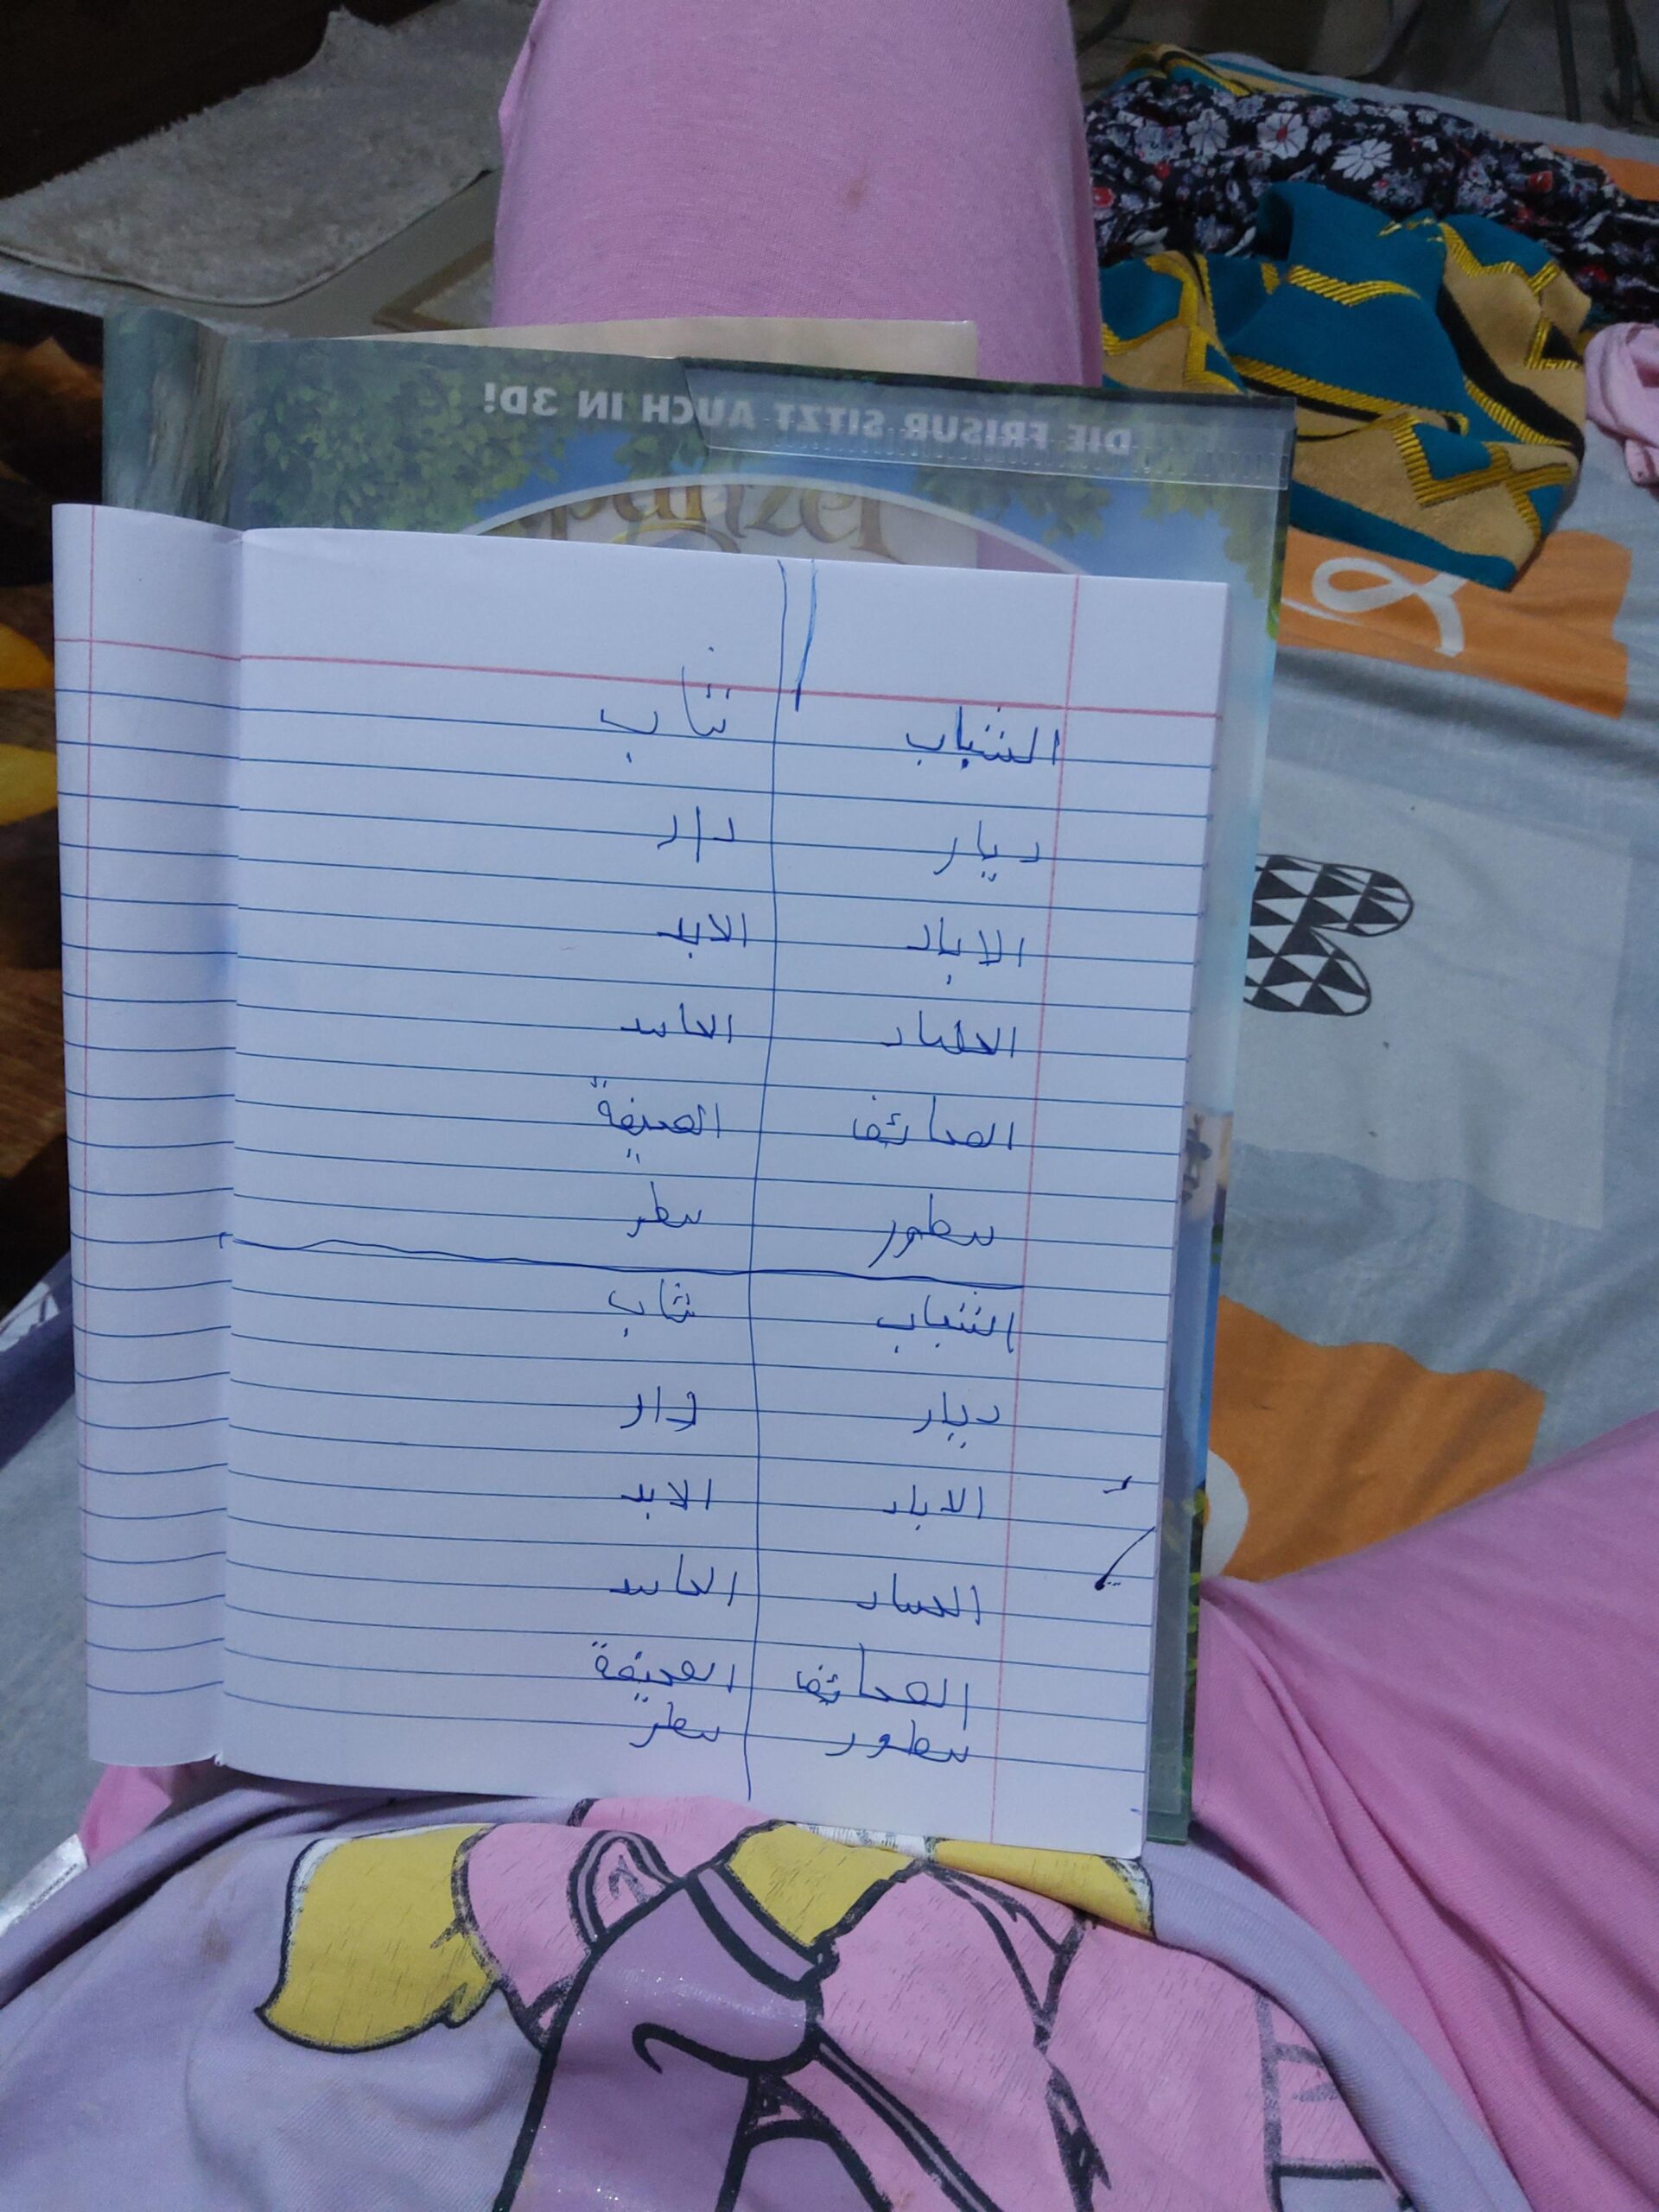 DIE FRISUR SITZT AUCH IN 3D!
الشباب شاب
ديار دار
الاباد الابد
الحساد الحاسد
الصحائف الصحيفة
سطور سطر
الشباب شاب
ديار دار
الاباد الابد
الحساد الحاسد
الصحائف الصحيفة
سطور سطر